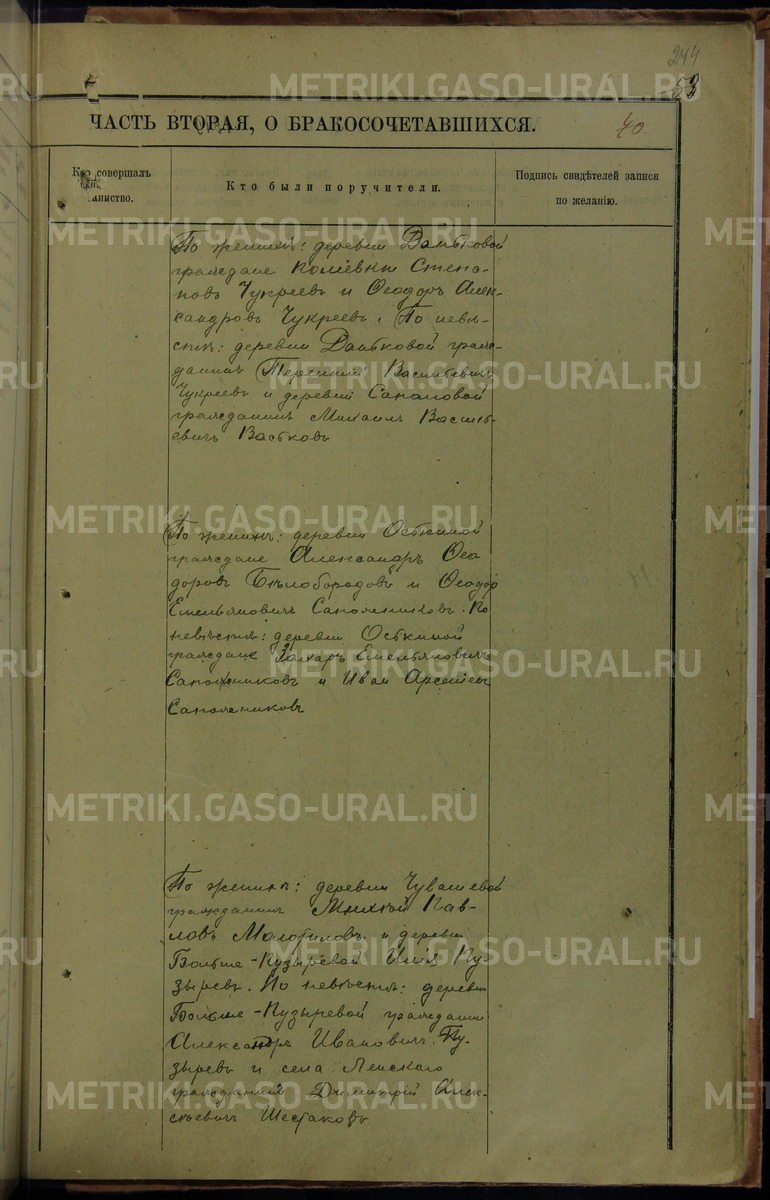 244
53
ЧАСТЬ ВТОРАЯ, О БРАКОСОЧЕТАВШИХСЯ.
40.
Кто совершалъ
таинство.
Кто были поручители.
Подпись свидѣтелей записи
по желанію.
По женихѣ: деревни
граждане Степа-
новъ Чукреевъ и Ѳеодоръ Алек-
сандровъ Чукреевъ. По невѣ-
стѣ: деревни граж-
данинъ Терентій Васильевичъ
Чукреевъ и деревни
гражданинъ Михаилъ Василь-
евичъ Вастковъ
По женихѣ: деревни Осткиной
граждане Александръ Ѳео-
доровъ Бѣлобородовъ и Ѳеодоръ
Емельяновичъ Сапожниковъ. По
невѣстѣ: деревни Осткиной
граждане Захаръ Емельяновичъ
Сапожниковъ и Иван Арсеніев
Сапожниковъ
По женихѣ: деревни Чувашевой
гражданинъ Пав-
ловъ и деревни
Больше-Кузыревой Илія Ку-
зыревъ. По невѣстѣ: деревни
Больше-Кузыревой гражданинъ
Александръ Ивановичъ Ку-
зыревъ и села Ленскаго
гражданинъ Димитрій Алек-
сѣевичъ Шестаковъ
METRIKI.GASO-URAL.RU